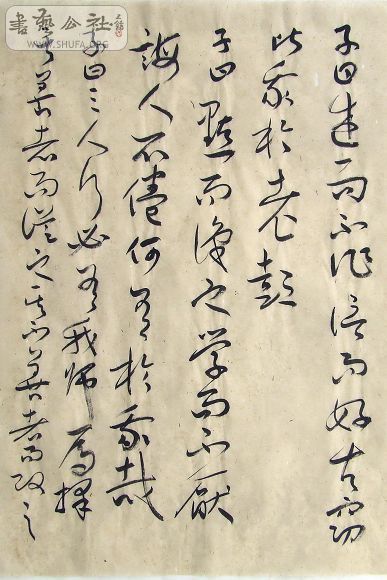 子曰述而不作信而好古窃
比我於老彭
子曰默而识之学而不厌
诲人不倦何有於我哉
子曰三人行必有我师焉择
其善者而从之其不善者而改之
書藝公社
WWW.SHUFA.ORG